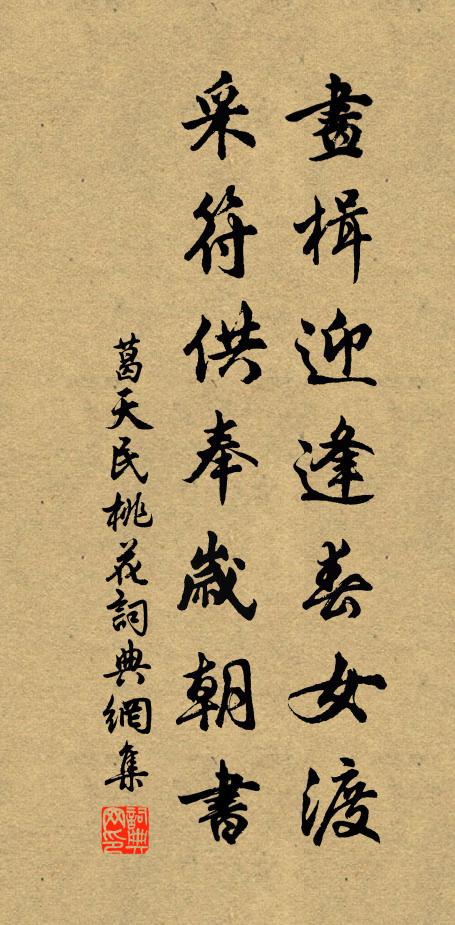 畫楫迎逢春女渡
采符供奉歲朝書
葛天民桃花詞典網集
詞典網印